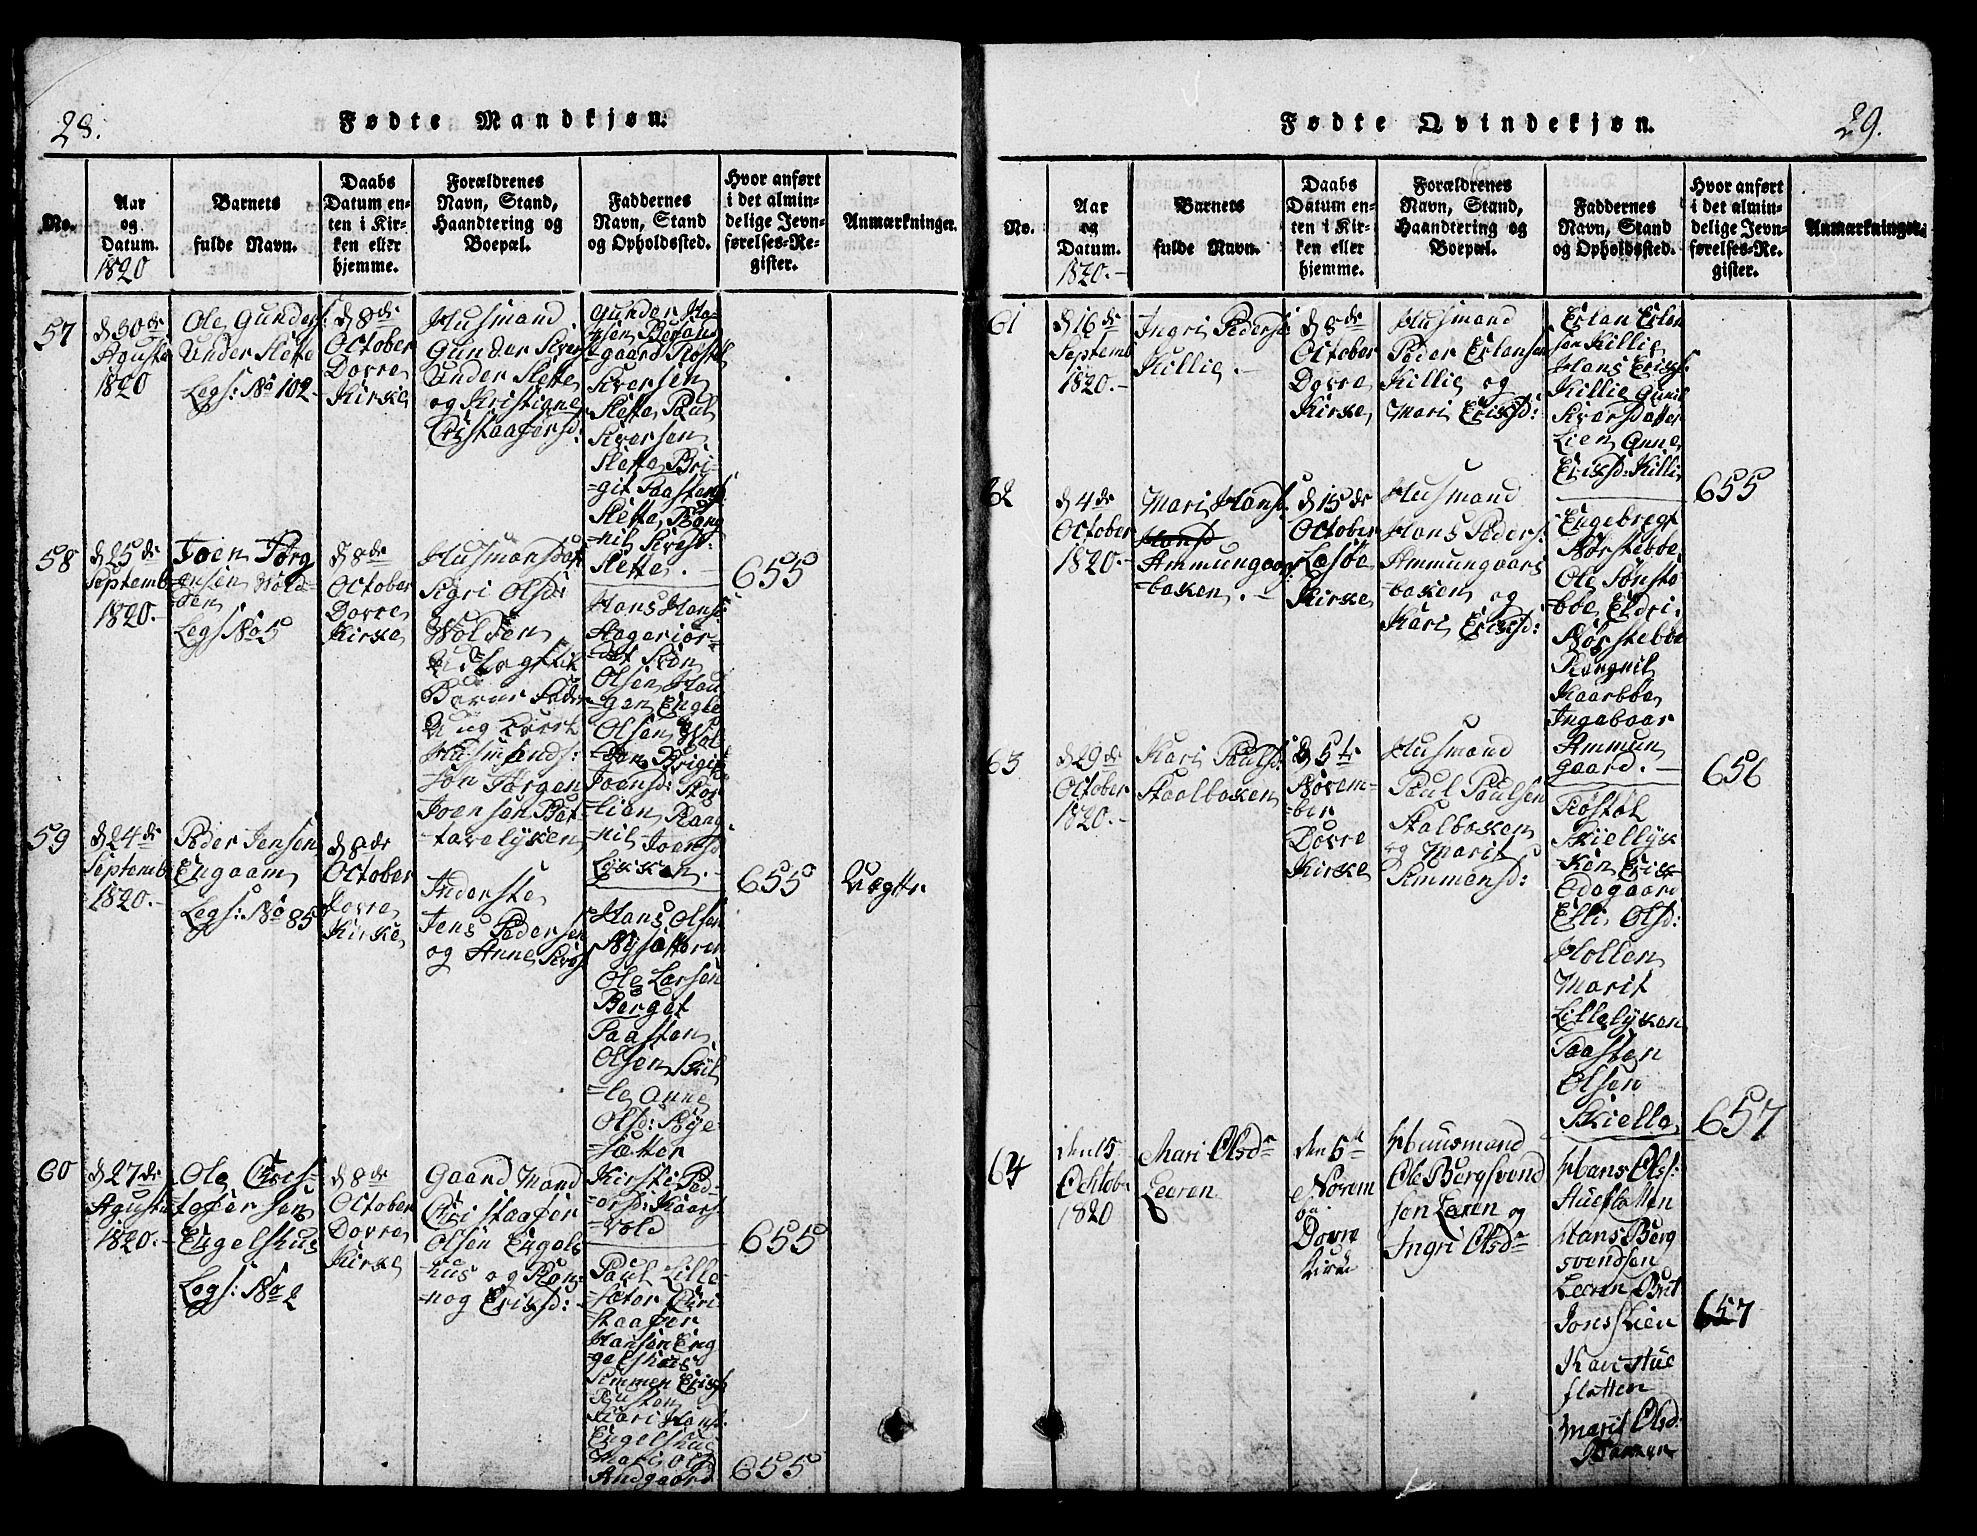 28.
Fødte Mandkjøn.
No.
Aar
og
Datum.
1820
Barnets
fulde Navn.
Daabs
Datum en-
ten i Kir-
ken eller
hjemme.
Forældrenes
Navn, Stand,
Haandtering og
Boepæl.
Faddernes
Navn, Stand
og Opholdssted.
Hvor anført
i det almin-
delige Jevn-
førelses-Re-
gister.
Anmærkninger.
57
d 30de
Agusti
1820
Ole Gunders:
Under Slette
Legs: No 102
d 8de
October
Dovre
Kirke
Husmand
Gunder Sivers
Under Slette
og Kristiane
Cristaafersd:
Gunder
Siversen
Slette Paul
Siversen
Slette Bri-
=git Paastens
Slette Rang
=nil Siversd:
Slette. -
655
58
d 25de
Septemb
1820. -
Joen Jørg
ensen Wold-
den
Legs No 5
d 8de
October
Dovre
Kirke
Husmansdat
Sigri Olsd:
Wolden
Husmands:
søn Jørgen
Joensen Bat
=tarelyken
Hans Hans:
Olsen Hau
=gen Engle
Olsen Wol
=den Brigit
Joensd: Stor
=lien Rang
=nil Joensd
Lykken. -
655
59
d 24de
Septemb
1820. -
Peder Jensen
Engaam
Legs: No 85
d 8de
October
Dovre
Kirke
Inderste
Jens Pedersen
og Anne Sivers
Hans Olsen
Nysetteren
Ole Larsen
Berget
Paasten
Olsen Kil
=le Anne
Olsd: Nye
=setter
Kirsti Ped-
=ersd: Kaars
=vold
655
60
d 27de
Agusti
1820. -
Ole Cris-
tofersen
Engelshus
Legs: No 2
d 8de
October
Dovre
Kirke
Gaard Mand
Cristaafer
Olsen Engels
hus og Ron-
=nog Eriksd:
Paul Lille-
=seter Cri-
staafer
Hansen Eng
=gelshus
Simmen Eriks
Kari Hans:
Engelshus
Mari Olsd
Andgaard
655
29.
Fødte Qvindekjøn.
No.
Aar
og
Datum.
1820. -
Barnets
fulde Navn.
Daabs
Datum en-
ten i Kir-
ken eller
hjemme.
Forældrenes
Navn, Stand,
Haandtering og
Boepæl.
Faddernes
Navn, Stand
og Opholdssted.
Hvor anført
i det almin-
delige Jevn-
førelses-Re-
gister.
Anmærkninger.
61
d 16de
Septemb
1820. -
Ingri Peders:
Killie. -
d 8de
October
Dovre
Kirke
Husmand
Peder Erlansen
Killie og
Mari Eriksd:
Erlan Erlan
sen Killie
Hans Eriks:
Killie Gunil
Siversdatter
Lien Anne
Eriksd: Killi
655
62
d 4de
October
1820. -
Mari Hans:
Hansd
Ammungaar
=baken. -
d 15de
October
Lesøe
Kirke
Husmand
Hans Peders:
Ammungaars
=baken og
Kari Eriksd:
Engebregt
Nørstebøe
Ole Sønste
=bøe Eldri
Nørstebø
Rangnil
Kaarbøe
Ingebaar
Ammun
gaard. -
656
63
d 29de
October
1820. -
Kari Paulsd:
Staalbaken
d 5te
Novem-
ber
Dovre
Kirke
Husmand
Paul Paulsen
Stalbaken
og Marit
Simmensd:
Tøstøl
Kiellyk
=ken Erik
Odegaard
Elli Olsd:
Hollen
Marit
Lillelyken
Paasten
Olsen
Kielle
657
64
den 15
Ochtobe
1820
Mari Olsdr
Leeren
den 5te
Novem
ber
Dovre
Kirke
Huusmand
Ole Bergsvend
sen Leeren og
Ingri Olsdr
Hans Ols:
Stueflotten
Hans Berg
svendsen
Leeren Brit
Jons Lien
Kari Stue
flotten
Marit Olsd:
657